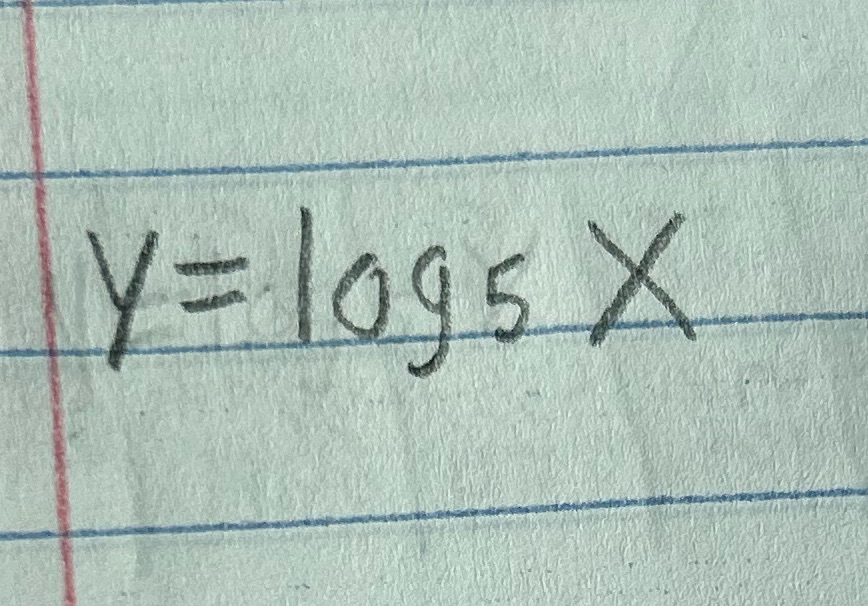 y=log₅ X